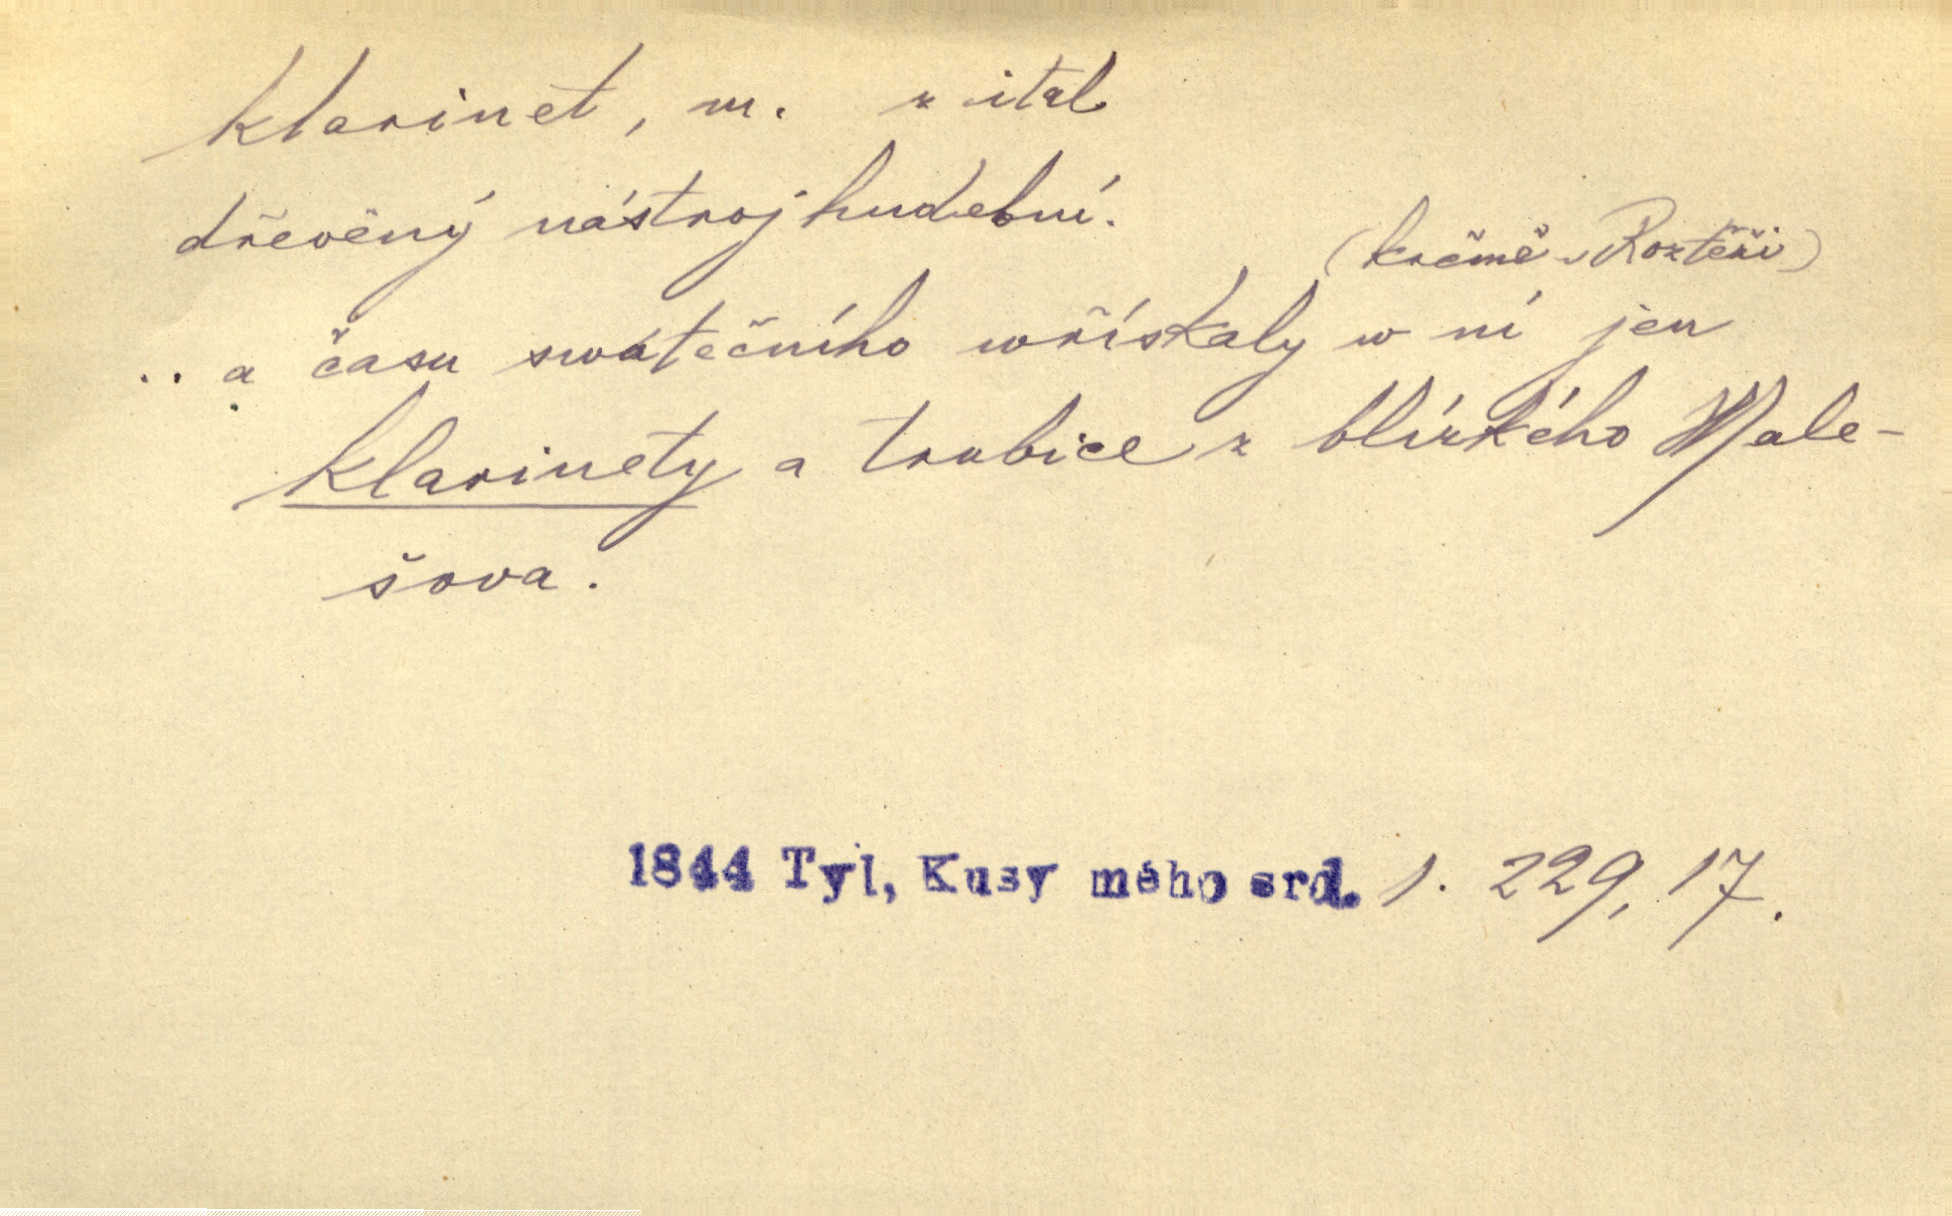 klarinet, m. z ital
dřevěný nástroj hudební.
(krčmě v Roztěři)
.. a času swátečního wřískaly w ní jen
klarinety a trubice z blízkého Male-
šova.
1844 Tyl, Kusy mého srd. 1. 229, 17.